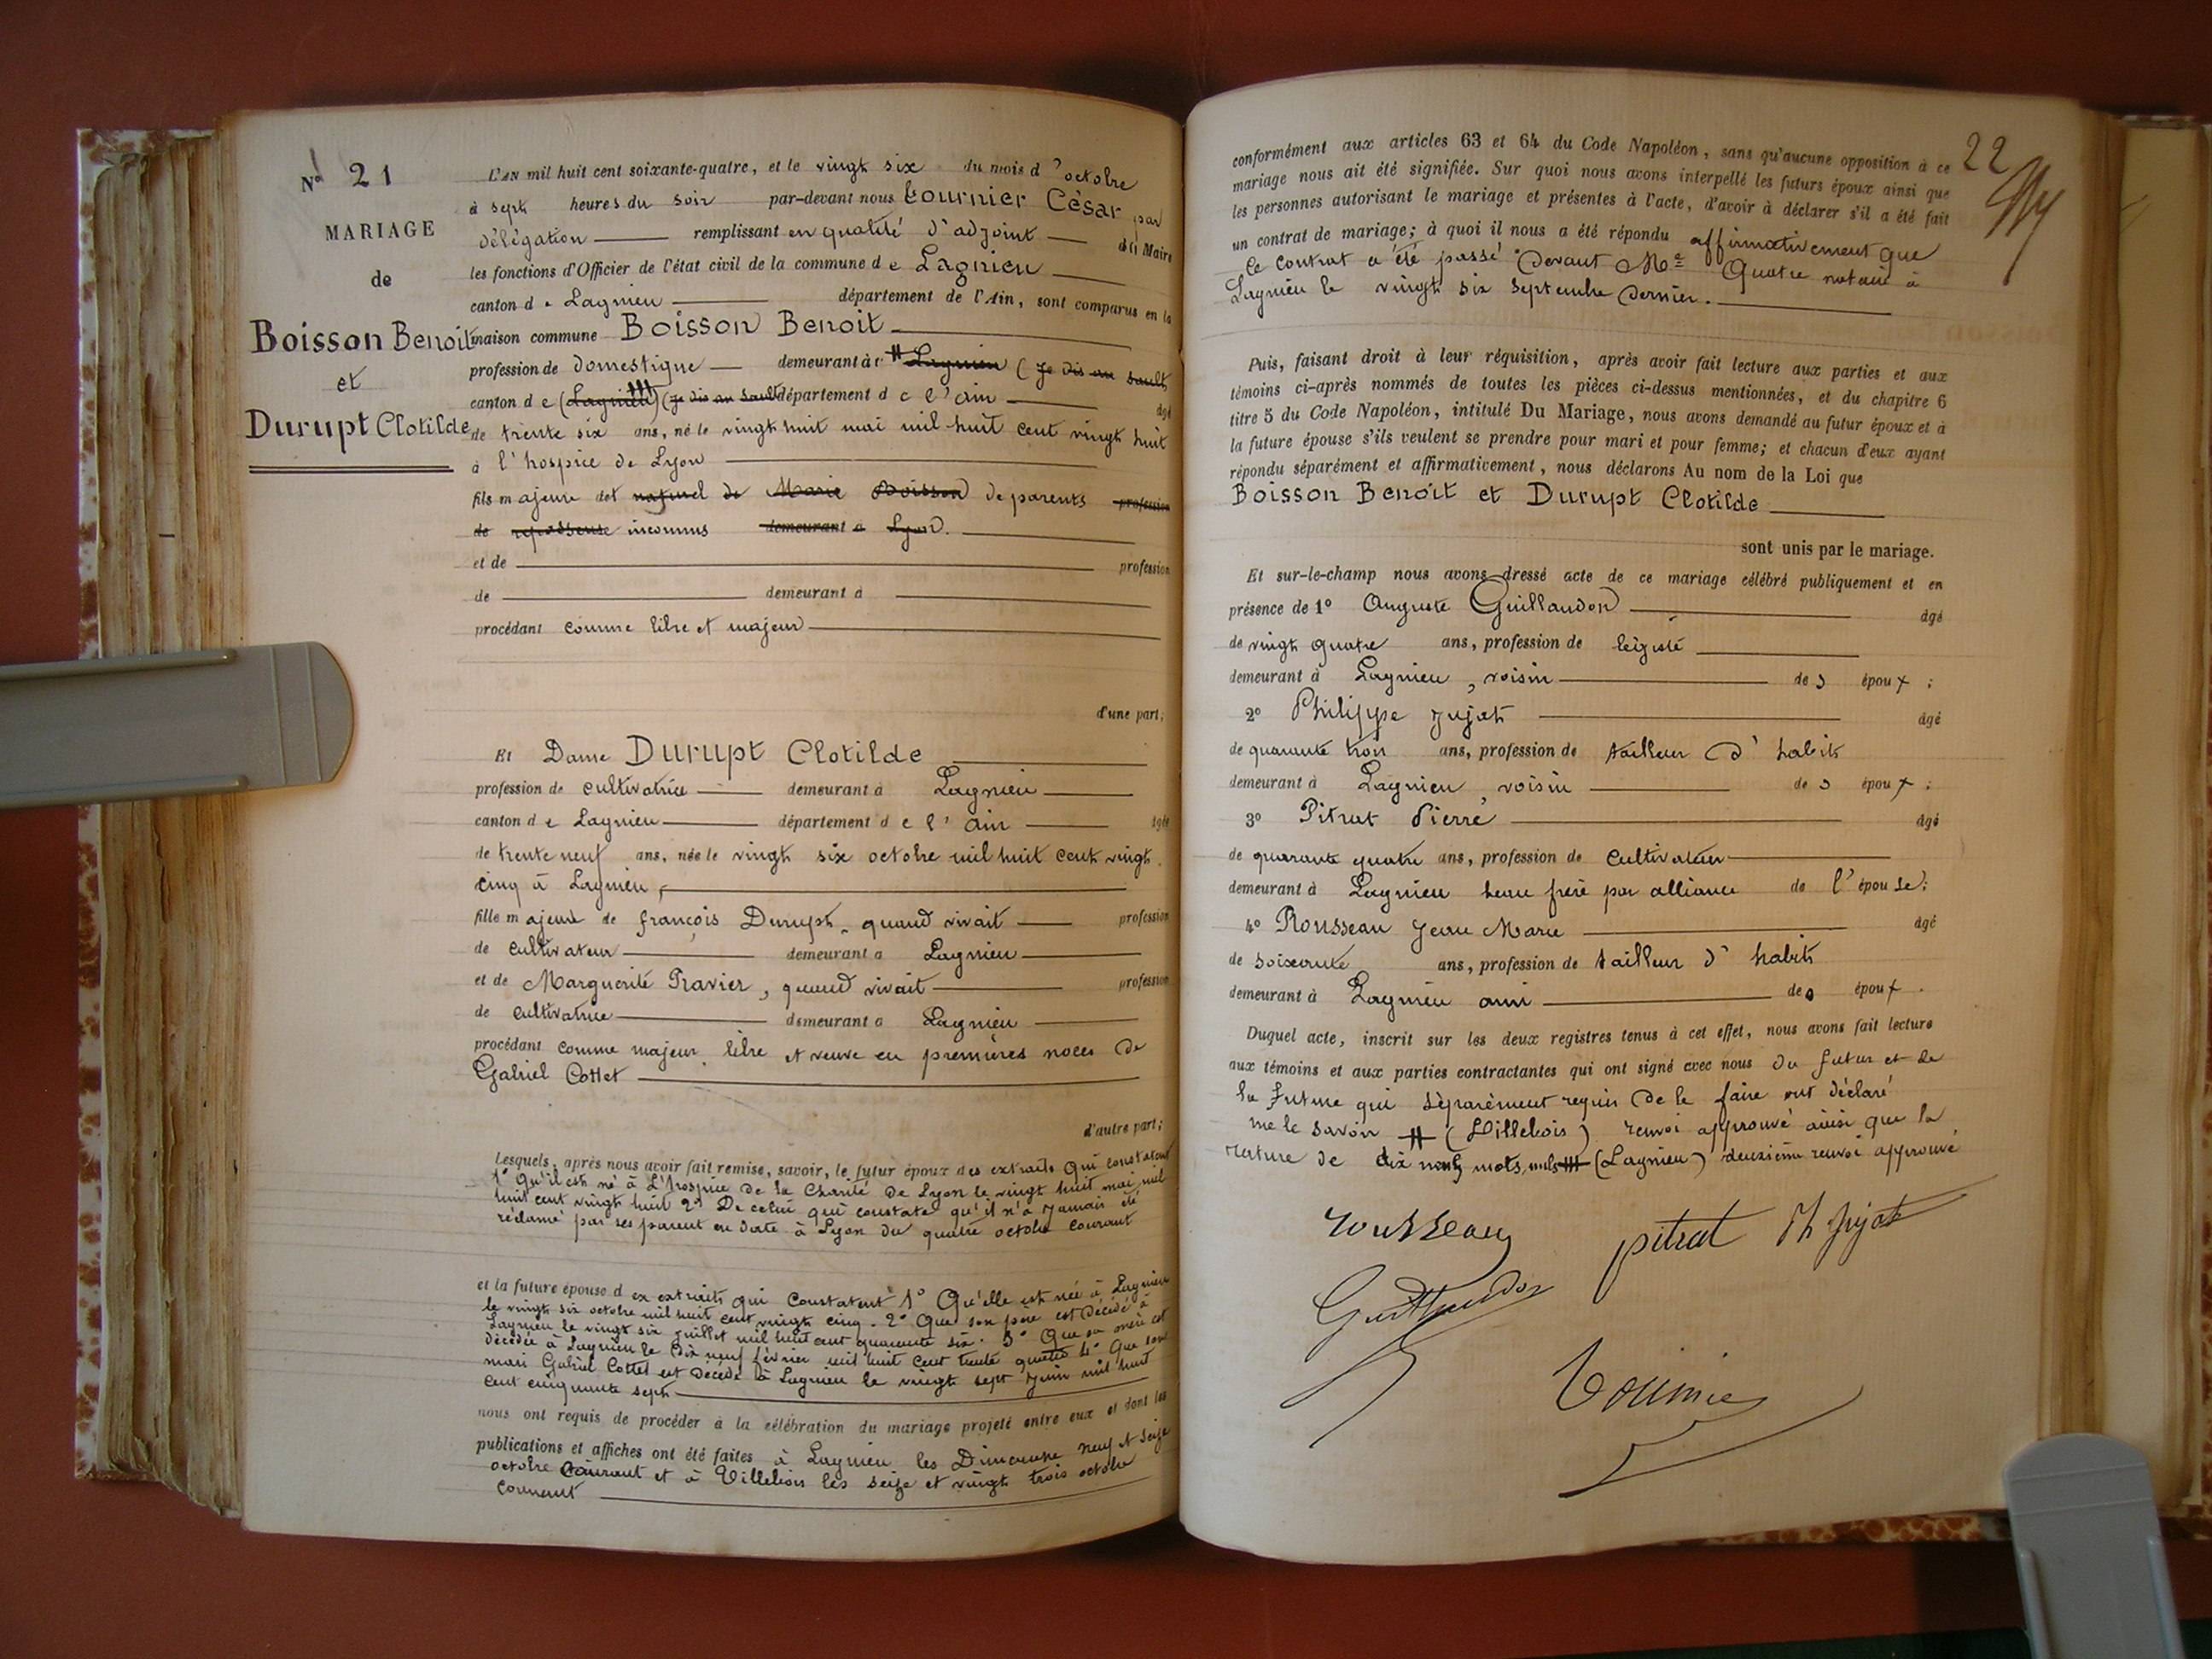 No 21
MARIAGE
de
Boisson Benoit
et
Durupt Clotilde
L'AN mil huit cent soixante-quatre, et le vingt six du mois d'octobre
à sept heures du soir par-devant nous tournier César par
délégation remplissant en qualité d'adjoint du Maire
les fonctions d'Officier de l'état civil de la commune de Lagnieu
canton de Lagnieu département de l'Ain, sont comparus en la
maison commune Boisson Benoit
profession de domestique demeurant à # Lagnieu (je dis au Sault
canton de (Lagnieu) (je dis au Sault département de l'ain âgé
de trente six ans, né le vingt huit mai mil huit cent vingt huit
à l'hospice de Lyon
fils majeur et naturel de Marie Boisson de parents profession
de repasseuse inconnus demeurant à Lyon.
et de profession
de demeurant à
procédant comme libre et majeur
d'une part;
Et Dame Durupt Clotilde
profession de cultivatrice demeurant à Lagnieu
canton de Lagnieu département de l'ain âgée
de trente neuf ans, née le vingt six octobre mil huit cent vingt
cinq à Lagnieu
fille majeure de françois Durupt quand vivait profession
de cultivateur demeurant à Lagnieu
et de Marguerite Travier, quand vivait profession
de cultivatrice demeurant à Lagnieu
procédant comme majeur libre et veuve en premières noces de
Gabriel Cottet
d'autre part;
Lesquels, après nous avoir fait remise, savoir, le futur époux des extraits qui constatent
1° Qu'il est né à L'hospice de la Charité de Lyon le vingt huit mai mil
huit cent vingt huit 2° De celui qui constate qu'il n'a jamais été
réclamé par ses parent en date à Lyon du quatre octobre courant
et la future épouse des extraits qui constatent 1° Qu'elle est née à Lagnieu
le vingt six octobre mil huit cent vingt cinq. 2° Que son père est décédé à
Lagnieu le vingt six juillet mil huit cent quarante six. 3° Que sa mère est
décédée à Lagnieu le dix neuf février mil huit cent trente quatre 4° Que son
mari Gabriel Cottet est décédé à Lagnieu le vingt sept juin mil huit
cent cinquante sept
nous ont requis de procéder à la célébration du mariage projeté entre eux et dont les
publications et affiches ont été faites à Lagnieu les Dimanche neuf et seize
octobre courant et à Villebois les seize et vingt trois octobre
courant
22
conformément aux articles 63 et 64 du Code Napoléon, sans qu'aucune opposition à ce
mariage nous ait été signifiée. Sur quoi nous avons interpellé les futurs époux ainsi que
les personnes autorisant le mariage et présentes à l'acte, d'avoir à déclarer s'il a été fait
un contrat de mariage; à quoi il nous a été répondu affirmativement que
le contrat a été passé devant Me Quatre notaire à
Lagnieu le vingt six septembre dernier.
Puis, faisant droit à leur réquisition, après avoir fait lecture aux parties et aux
témoins ci-après nommés de toutes les pièces ci-dessus mentionnées, et du chapitre 6
titre 5 du Code Napoléon, intitulé Du Mariage, nous avons demandé au futur époux et à
la future épouse s'ils veulent se prendre pour mari et pour femme; et chacun d'eux ayant
répondu séparément et affirmativement, nous déclarons Au nom de la Loi que
Boisson Benoit et Durupt Clotilde
sont unis par le mariage.
Et sur-le-champ nous avons dressé acte de ce mariage célébré publiquement et en
présence de 1° Auguste Guillaudon âgé
de vingt quatre ans, profession de légiste
demeurant à Lagnieu, voisin des époux;
2° Philippe Jujat âgé
de quarante trois ans, profession de tailleur d'habits
demeurant à Lagnieu, voisin des époux;
3° Pitrat Pierre âgé
de quarante quatre ans, profession de cultivateur
demeurant à Lagnieu beau frère par alliance de l'épouse;
4° Rousseau Jean Marie âgé
de soixante ans, profession de tailleur d'habits
demeurant à Lagnieu ami des époux.
Duquel acte, inscrit sur les deux registres tenus à cet effet, nous avons fait lecture
aux témoins et aux parties contractantes qui ont signé avec nous du futur et de
la future qui séparément requis de le faire ont déclaré
ne le savoir # (Villebois) renvoi approuvé ainsi que la
rature de dix neuf mots nuls (Lagnieu) deuxième renvoi approuvé
rousseau
pitrat
Ph jujat
Guillaudon
tournier